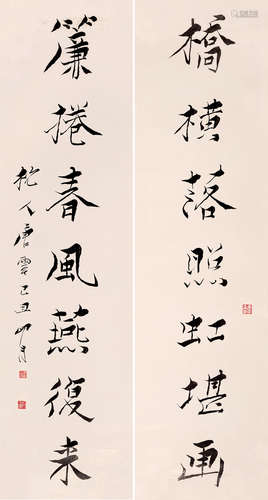 橋橫落照虹堪画
簾捲春風燕復来
杭人唐雲己丑四月